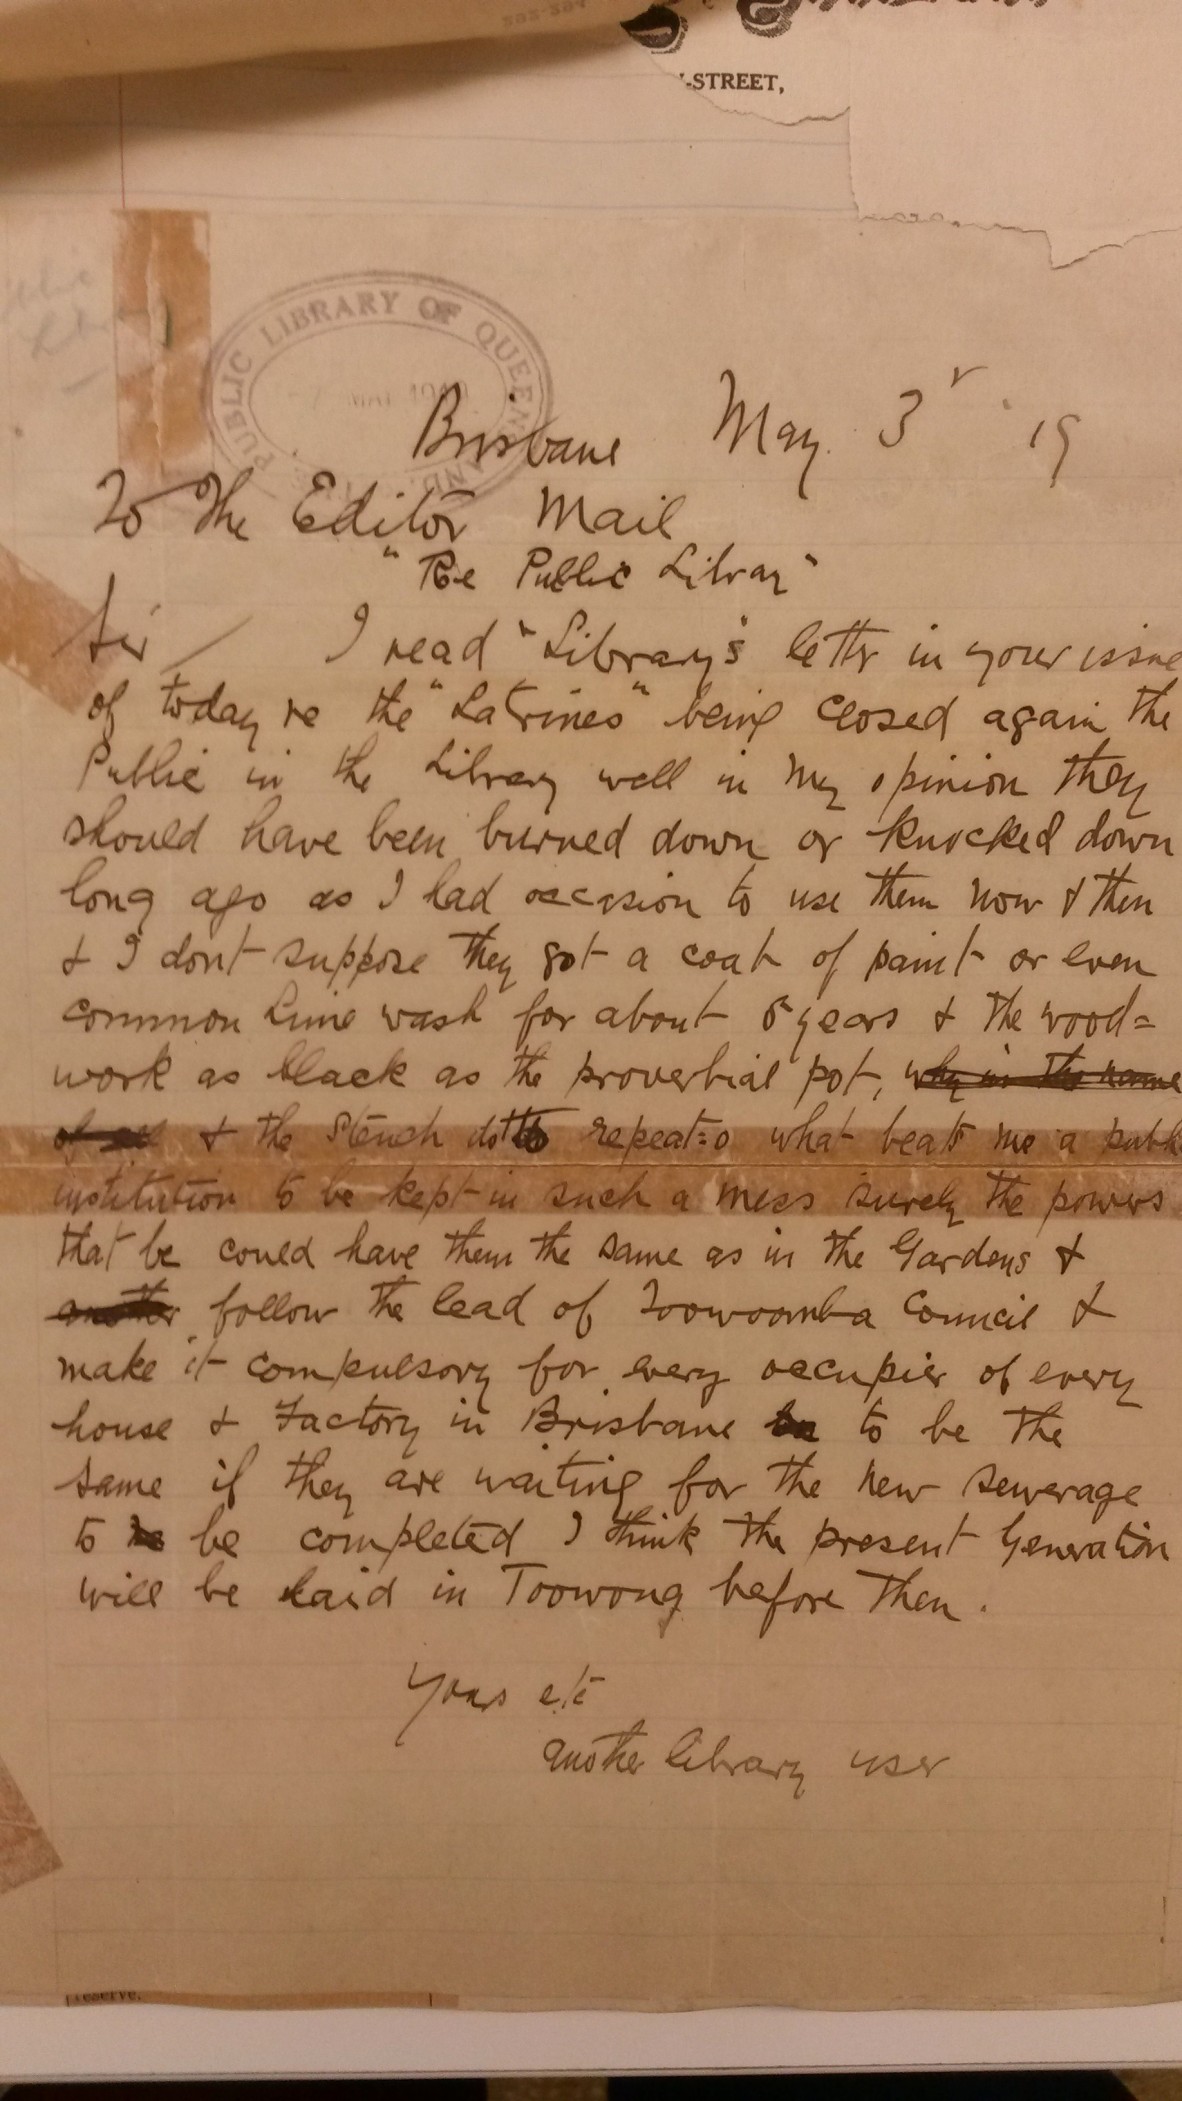 -STREET,
PUBLIC LIBRARY OF QUEENSLAND.
MAY
Brisbane May. 3r 19
To The Editor Mail
"Re Public Library"
Sir / I read "Library's" letter in your issue
of today re the "Latrines" being closed again the
Public in the Library well in my opinion they
should have been burned down or knocked down
long ago as I had occasion to use them now & then
& I dont suppose they got a coat of paint or even
common lime wash for about 5 years & the wood=
work as black as the proverbial pot, why in the name
of & the stench ditto repeat=o what beats me a publi
institution to be kept in such a mess surely the powers
that be could have them the same as in the Gardens &
another follow the lead of Toowoomba Council &
make it compulsory for every occupier of every
house & Factory in Brisbane to be the
same if they are waiting for the new sewerage
to be completed I think the present Generation
will be laid in Toowong before then.
Yours etc
another library user
reserve.